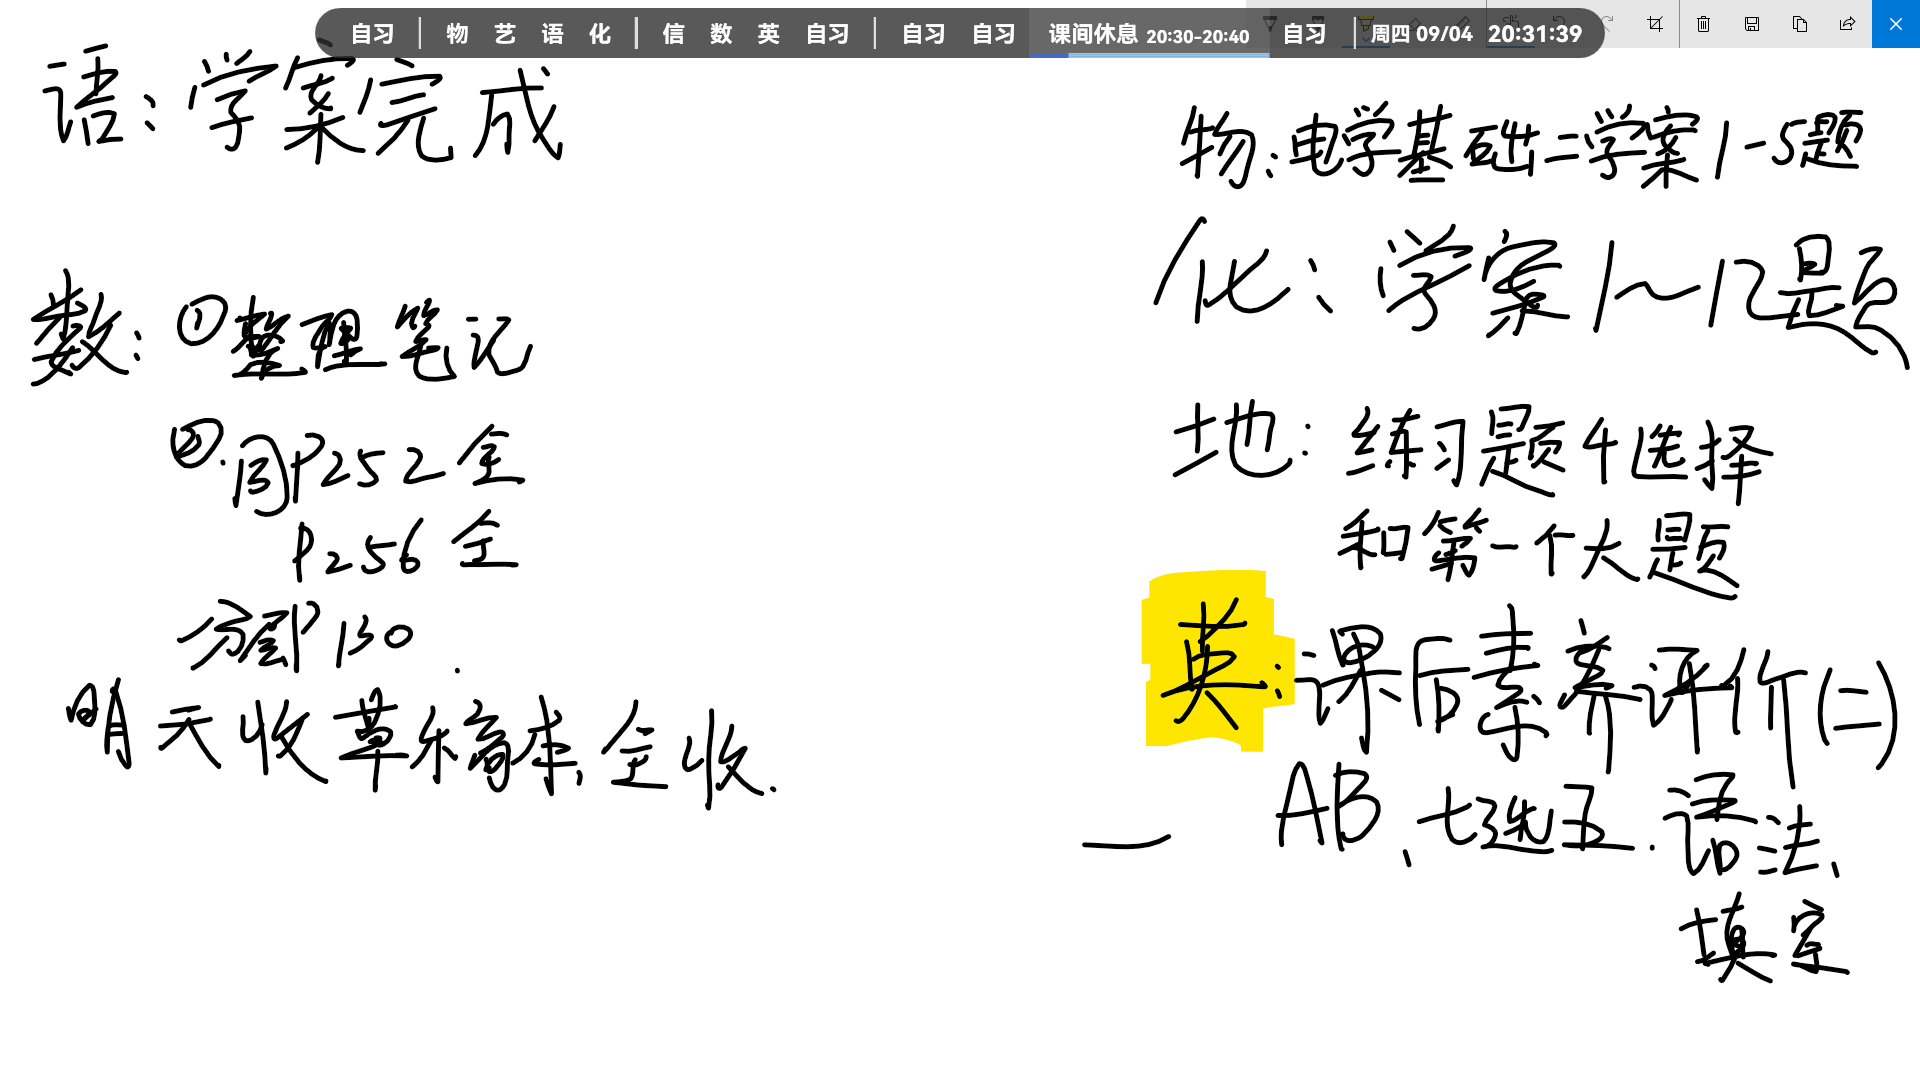 自习 | 物 艺 语 化 | 信 数 英 自习 | 自习 自习 课间休息 20:30-20:40 自习 | 周四 09/04 20:31:39
语:学案完成
数:①整理笔记
②.同P252全
P256全
分层P130.
明天收草稿本,全收.
物:电学基础二学案1-5题
化:学案1~12题
地:练习题4选择
和第一个大题
英:课后素养评价(二)
AB、七选五.语法、
填空